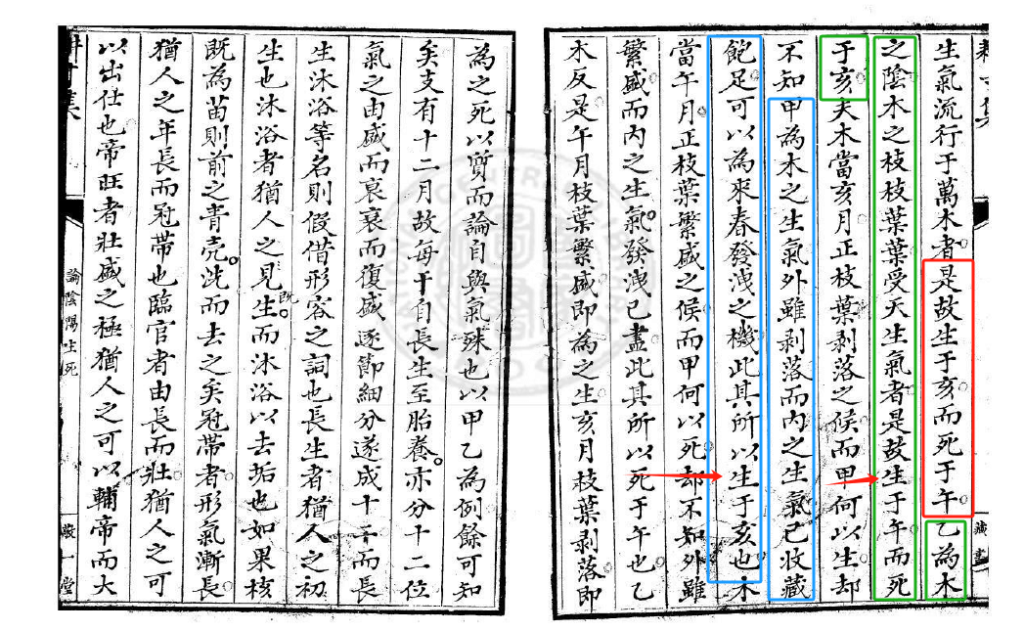 生氣流行于萬木者是故生于亥而死于午乙為木
之陰木之枝枝葉葉受天生氣者是故生于午而死
于亥夫木當亥月正枝葉剥落之候而甲何以生却
不知甲為木之生氣外雖剥落而内之生氣已收藏
飽足可以為來春發洩之機此其所以生于亥也木
當午月正枝葉繁盛之候而甲何以死却不知外雖
繁盛而内之生氣發洩已盡此其所以死于午也乙
木反是午月枝葉繁盛即為之生亥月枝葉剥落即
為之死以質而論自與氣殊也以甲乙為例餘可知
矣支有十二月故每干自長生至胎養亦分十二位
氣之由盛而衰衰而復盛逐節細分遂成十二而長
生沐浴等名則假借形容之詞也長生者猶人之初
生也沐浴者猶人之見生而沐浴以去垢也如果核
既
既為苗則前之青壳洗而去之矣冠帶者形氣漸長
猶人之年長而冠帶也臨官者由長而壯猶人之可
以出仕也帝旺者壯盛之極猶人之可以輔帝而大
論陰陽生死